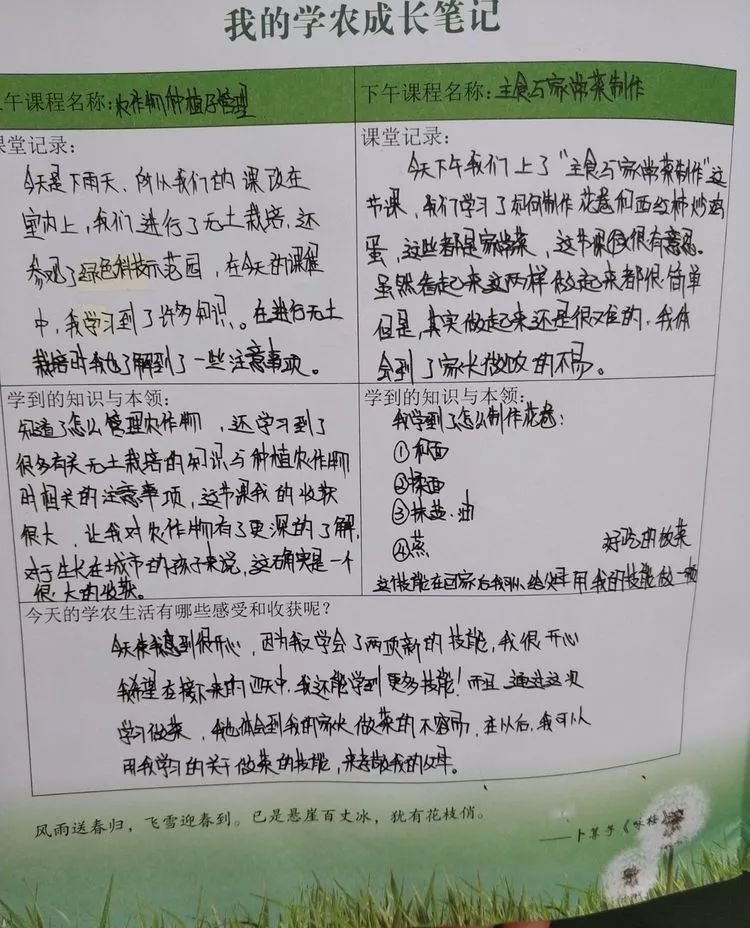 我的学农成长笔记
午课程名称:农作物种植与管理
下午课程名称:主食与家常菜制作
课堂记录:
今天是下雨天、所以我们的课改在
室内上,我们进行了无土栽培,还
参观了绿色科技示范园,在今天的课程
中,我学习到了许多知识、。在进行无土
栽培时我也了解到了一些注意事项。
课堂记录:
今天下午我们上了“主食与家常菜制作”这
节课,我们学习了如何制作花卷和西红柿炒鸡
蛋,这些都是家常菜,这节课我很有意思。
虽然看起来这两样做起来都很简单
但是,其实做起来还是很难的,我体
会到了家长做饭的不易。
学到的知识与本领:
知道了怎么管理农作物,还学习到了
很多有关无土栽培的知识与种植农作物
时相关的注意事项,这节课我的收获
很大,让我对农作物有了更深的了解,
对于生长在城市的孩子来说,这确实是一个
很大的收获。
学到的知识与本领:
我学到了怎么制作花卷:
①和面
②揉面
③抹盐、油
④蒸
好吃的饭菜
这些技能在回家后我可以给父母用我的技能做一顿
今天的学农生活有哪些感受和收获呢?
今天我感到很开心,因为我又学会了两项新的技能,我很开心
我希望在接下来的四天中,我还能学到更多技能!而且通过这次
学习做菜,我也体会到我的家长做菜的不容易,在以后,我可以
用我学习的关于做菜的技能,来孝敬我的父母。
风雨送春归,飞雪迎春到。已是悬崖百丈冰,犹有花枝俏。
——卜算子《咏梅》